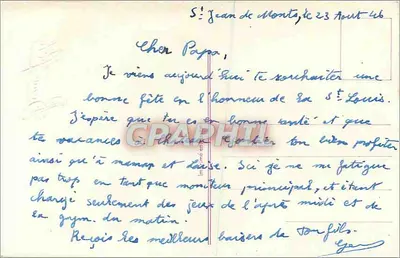 St Jean de Monts, le 23 Aout 46
Cher Papa,
Je viens aujourd'hui te souhaiter une
bonne fête en l'honneur de la St Louis.
J'espère que tu es en bonne santé et que
te vacances à ont bien profiter
ainsi qu'à maman et Louise. Ici je ne me fatigue
pas trop en tant que moniteur principal, et étant
chargé seulement des jeux de l'après midi et de
la gym. du matin.
Reçois les meilleurs baisers de ton fils.